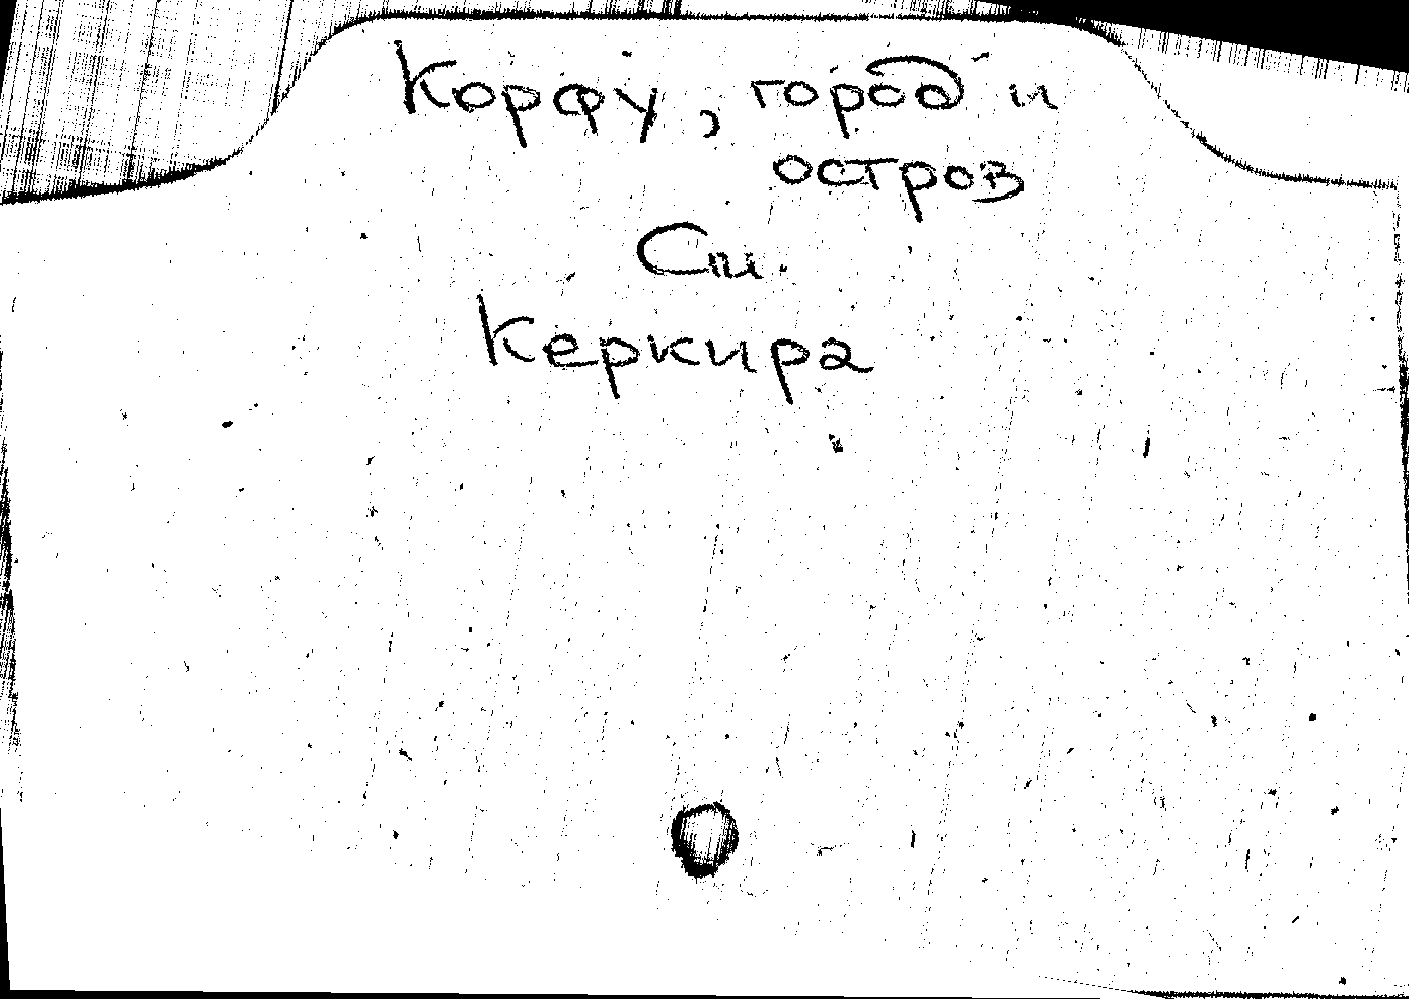 Корфу, город и
остров
См.
Керкира